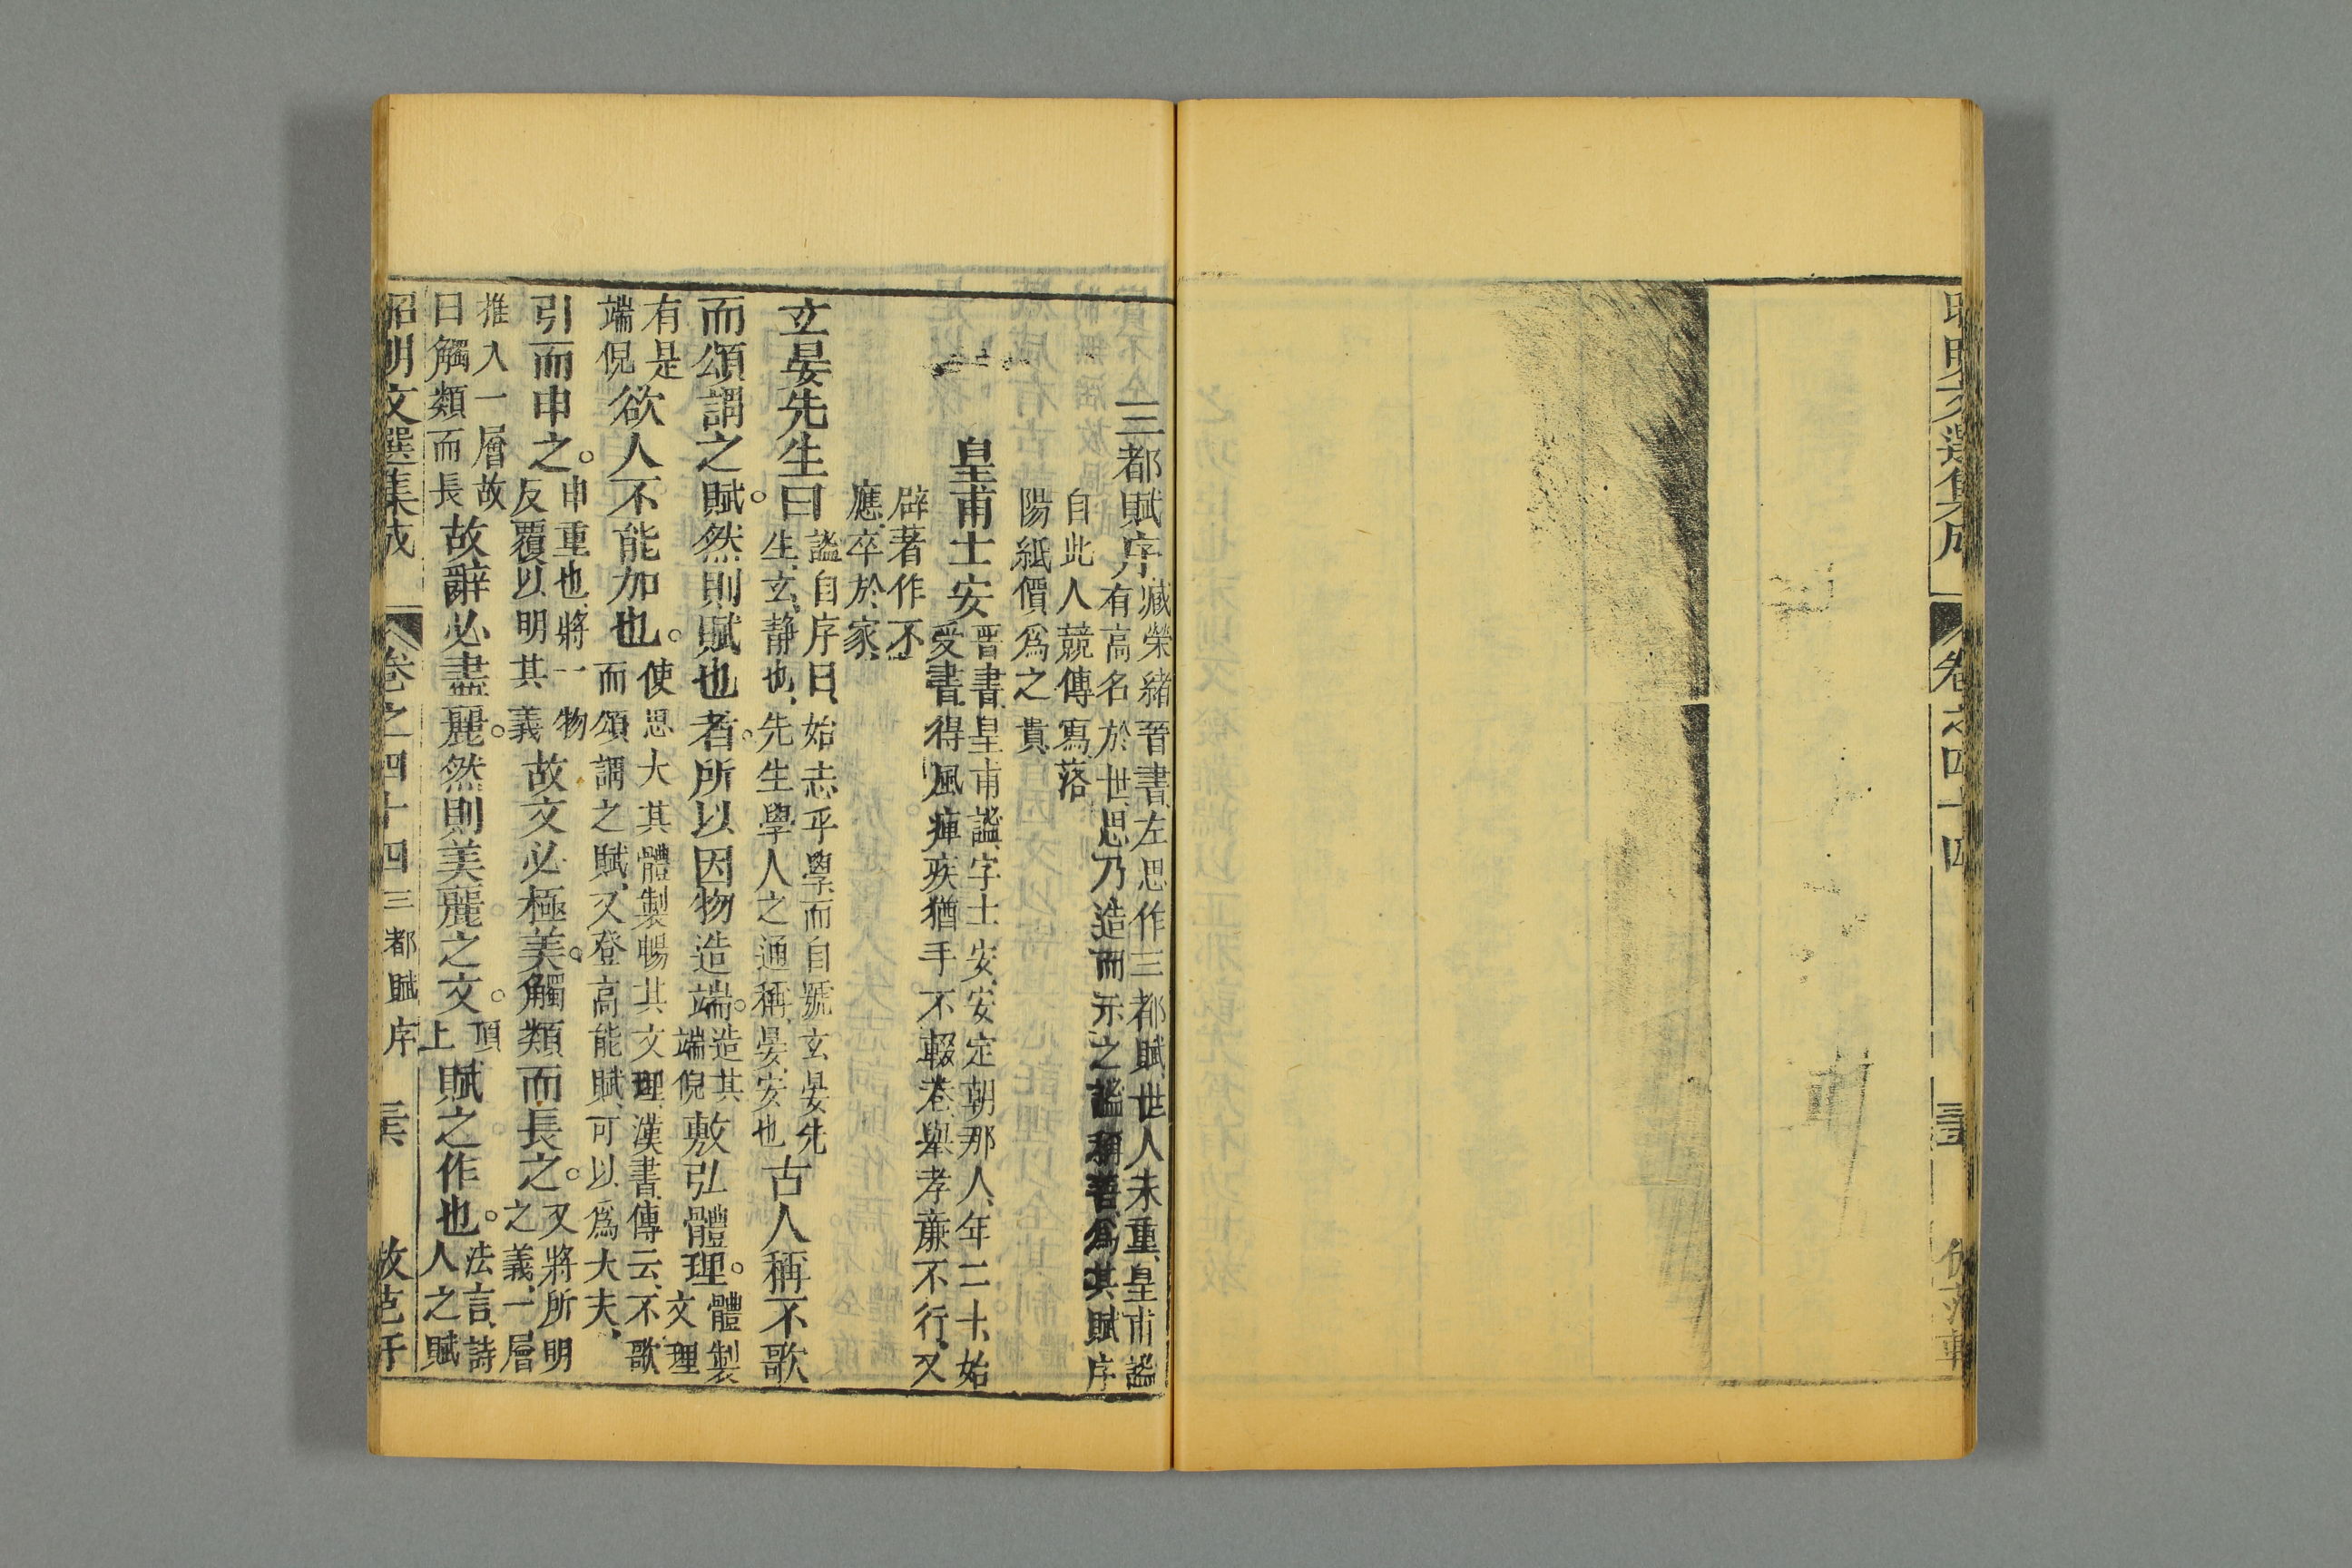 昭明文選集成 卷之四十四
三都賦序
臧榮緒晉書左思作三都賦世人未重皇甫謐
有高名於世思乃造而示之謐稱善爲其賦序
自此人競傳寫落
陽紙價爲之貴
皇甫士安
晉書皇甫謐字士安安定朝那人年二十始
受書得風痺疾猶手不輟卷舉孝廉不行又
辟著作不
應卒於家
玄晏先生曰
謐自序曰始志乎學而自號玄晏先
生玄靜也先生學人之通稱晏安也
古人稱不歌
而頌謂之賦。然則賦也者。所以因物造端。
造其
端倪
敷弘體理。
體製
文理
漢書傳云不歌
而頌謂之賦又登高能賦可以爲大夫
使思大其體製暢其文理
有是
端倪
欲人不能加也。
引而申之。
申重也將一物
反覆以明其義
故文必極美。觸類而長之。
又將所明
之義一層
推入一層故
曰觸類而長
故辭必盡麗。然則美麗之文。
頂
上
賦之作也。
法言詩
人之賦
昭明文選集成 卷之四十四 三都賦序